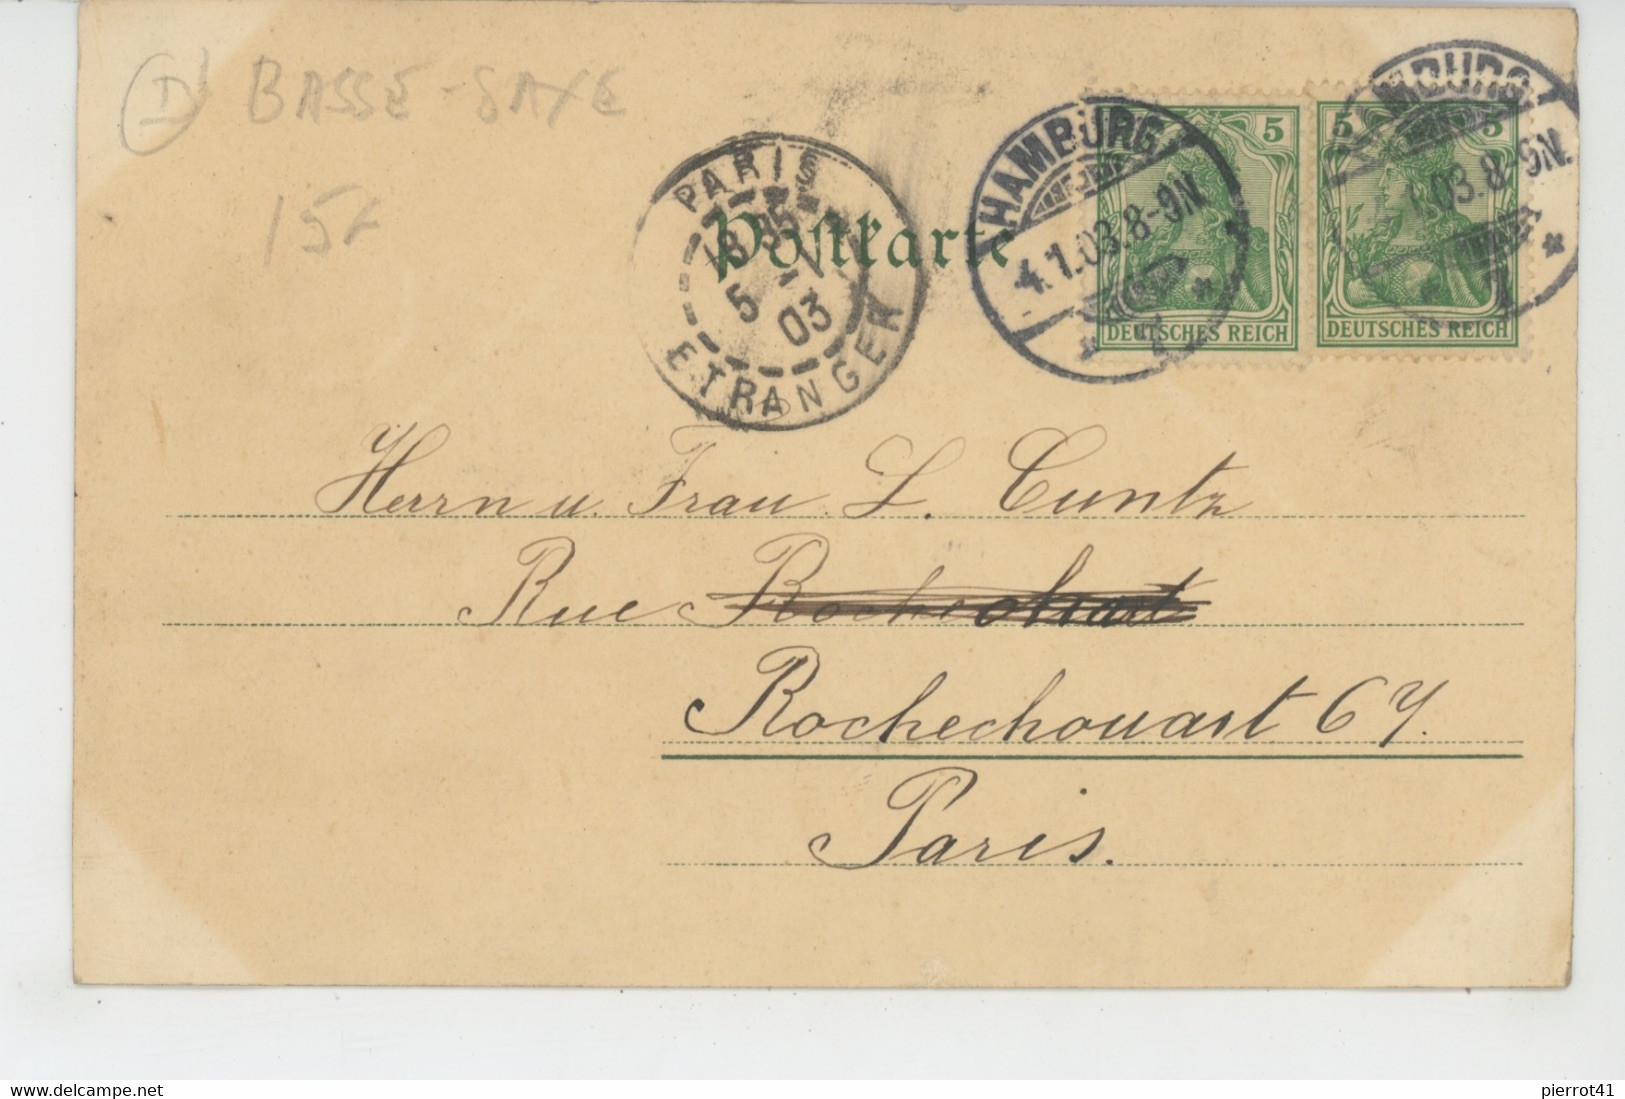 D BASSE-SAXE
15F
PARIS
18 35
5 - 1
03
ETRANGER
Postkarte
HAMBURG
4.1.03.8-9N.
5
DEUTSCHES REICH
HAMBURG
1.03.8-9N.
5 5
DEUTSCHES REICH
Herrn u. Frau L. Cuntz
Rue
Rochechouart 67.
Paris.
pierrot41